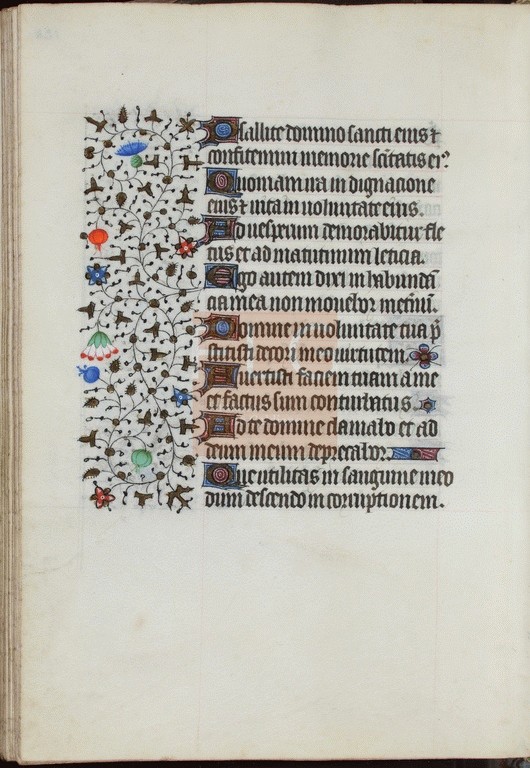 Psallite domino sancti eius ⁊
confitemini memorie sc̃tatis ei⁹
Quoniam ira in dignacione
eius ⁊ uita in uoluntate eius.
Ad uesperum demorabitur fle
tus et ad matutinum leticia.
Ego autem dixi in habundã
cia mea non mouebor in et̃nũ.
Domine in uoluntate tua p̃
stitisti decori meo uirtutem.
Auertisti faciem tuam a me
et factus sum conturbatus.
Ad te domine clamabo et ad
deum meum deprecabor.
Que utilitas in sanguine meo
dum descendo in corruptionem.